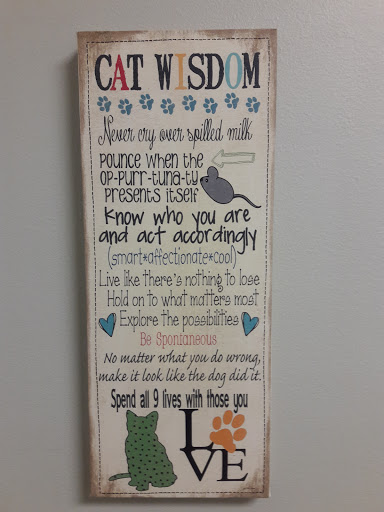 CAT WISDOM
Never cry over spilled milk
Pounce when the
op-purr-tuna-ty
presents itself
Know who you are
and act accordingly
(smart*affectionate*cool)
Live like there's nothing to lose
Hold on to what matters most
Explore the possibilities
Be Spontaneous
No matter what you do wrong,
make it look like the dog did it.
Spend all 9 lives with those you
LOVE